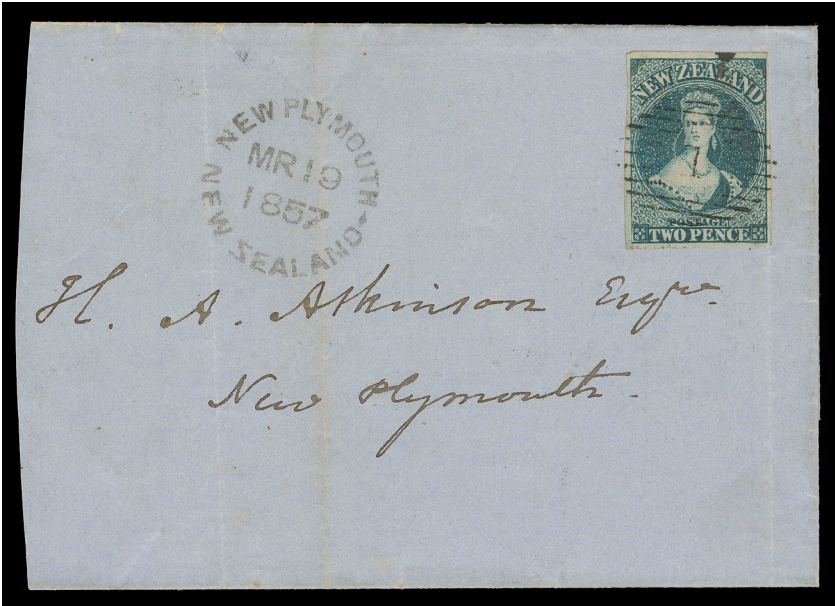 NEW PLYMOUTH
MR 19
1857
NEW ZEALAND
NEW ZEALAND
POSTAGE
TWO PENCE
H. A. Atkinson Esqre.
New Plymouth.